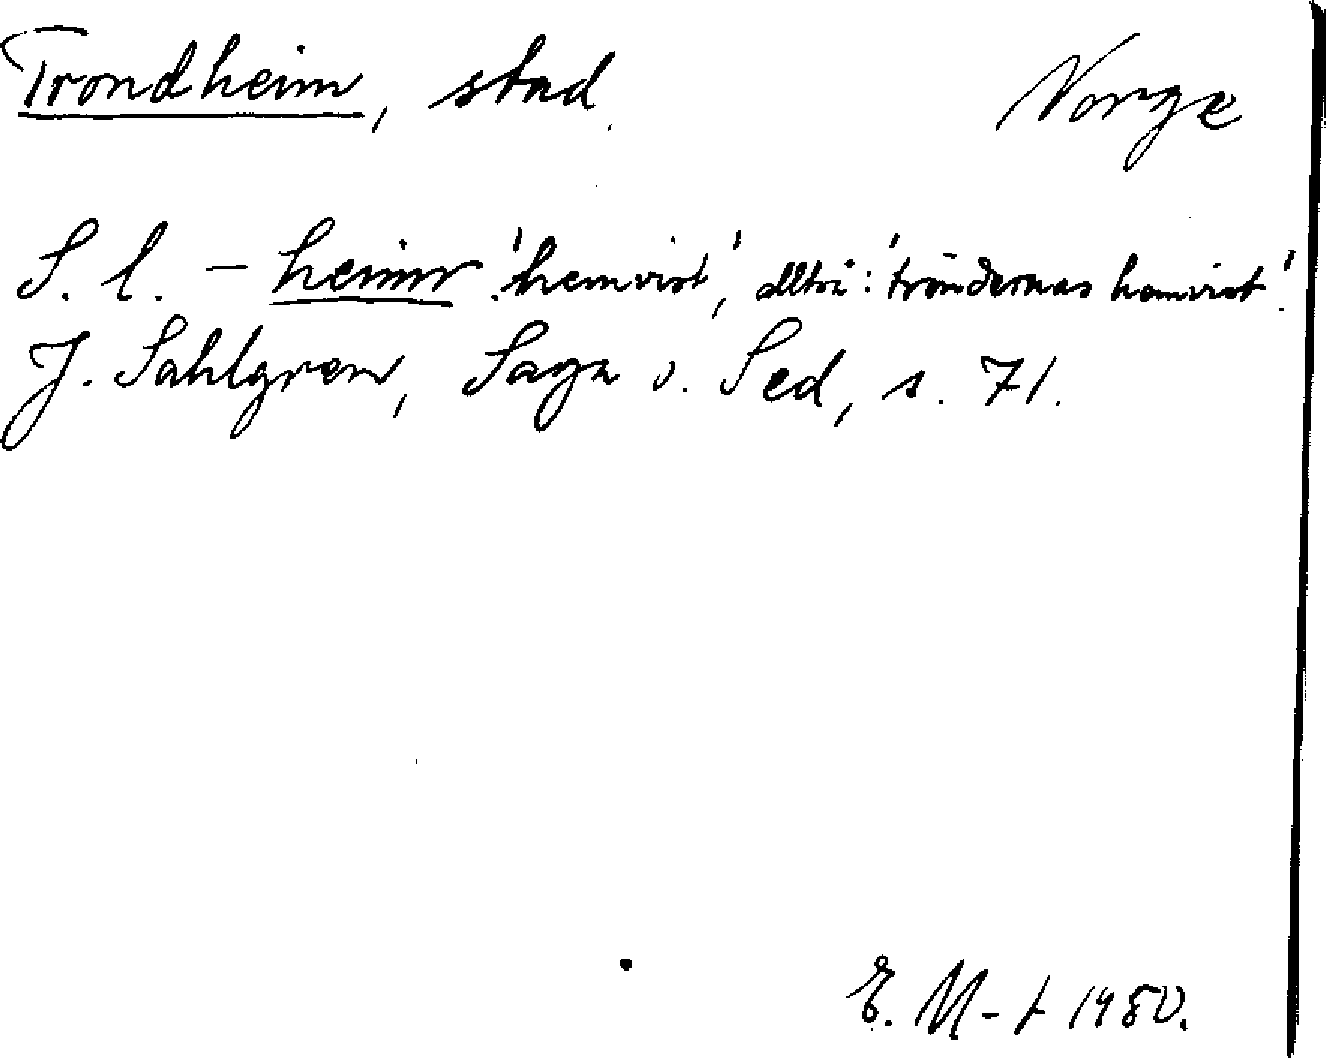 Trondheim, stad Norge
S. l. - heimr 'hemvist', alltså: 'tröndernas hemvist'.
J. Sahlgren, Saga o. Sed, s. 71.
E. M-t 1980.